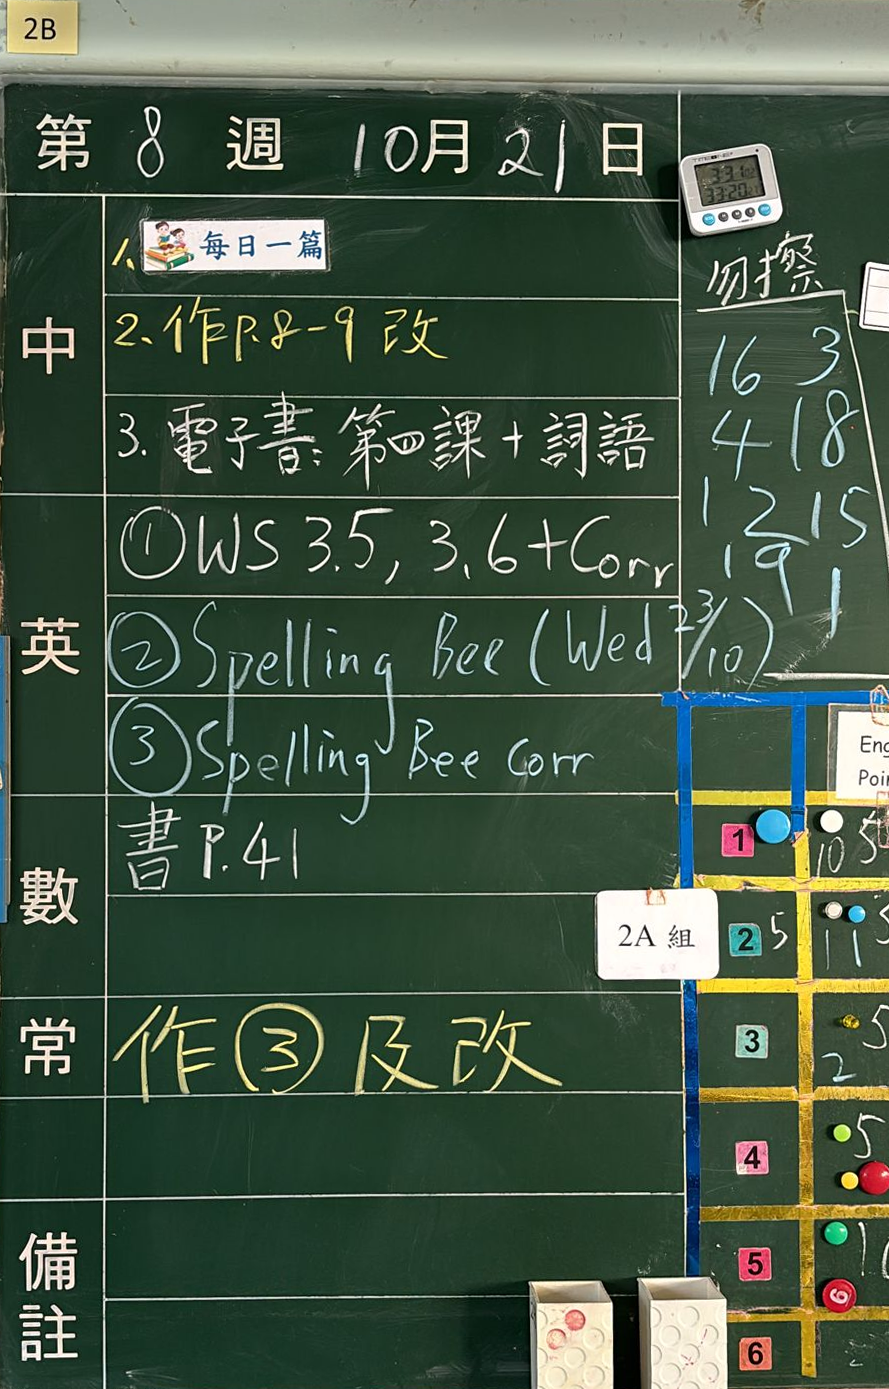 2B
第 8 週 10月21日
中
1、每日一篇
2、作P.8-9 改
3. 電子書：第四課+詞語
英
①WS 3.5, 3.6+Corr
②Spelling Bee (Wed 23/10)
③Spelling Bee Corr
數
書 P.41
常
作③及改
備註
勿擦
16 3
4 18
12 15
19 1
Eng
1
10 5
2A 組
2 5
11
3
5
2
4
5
5
6
6